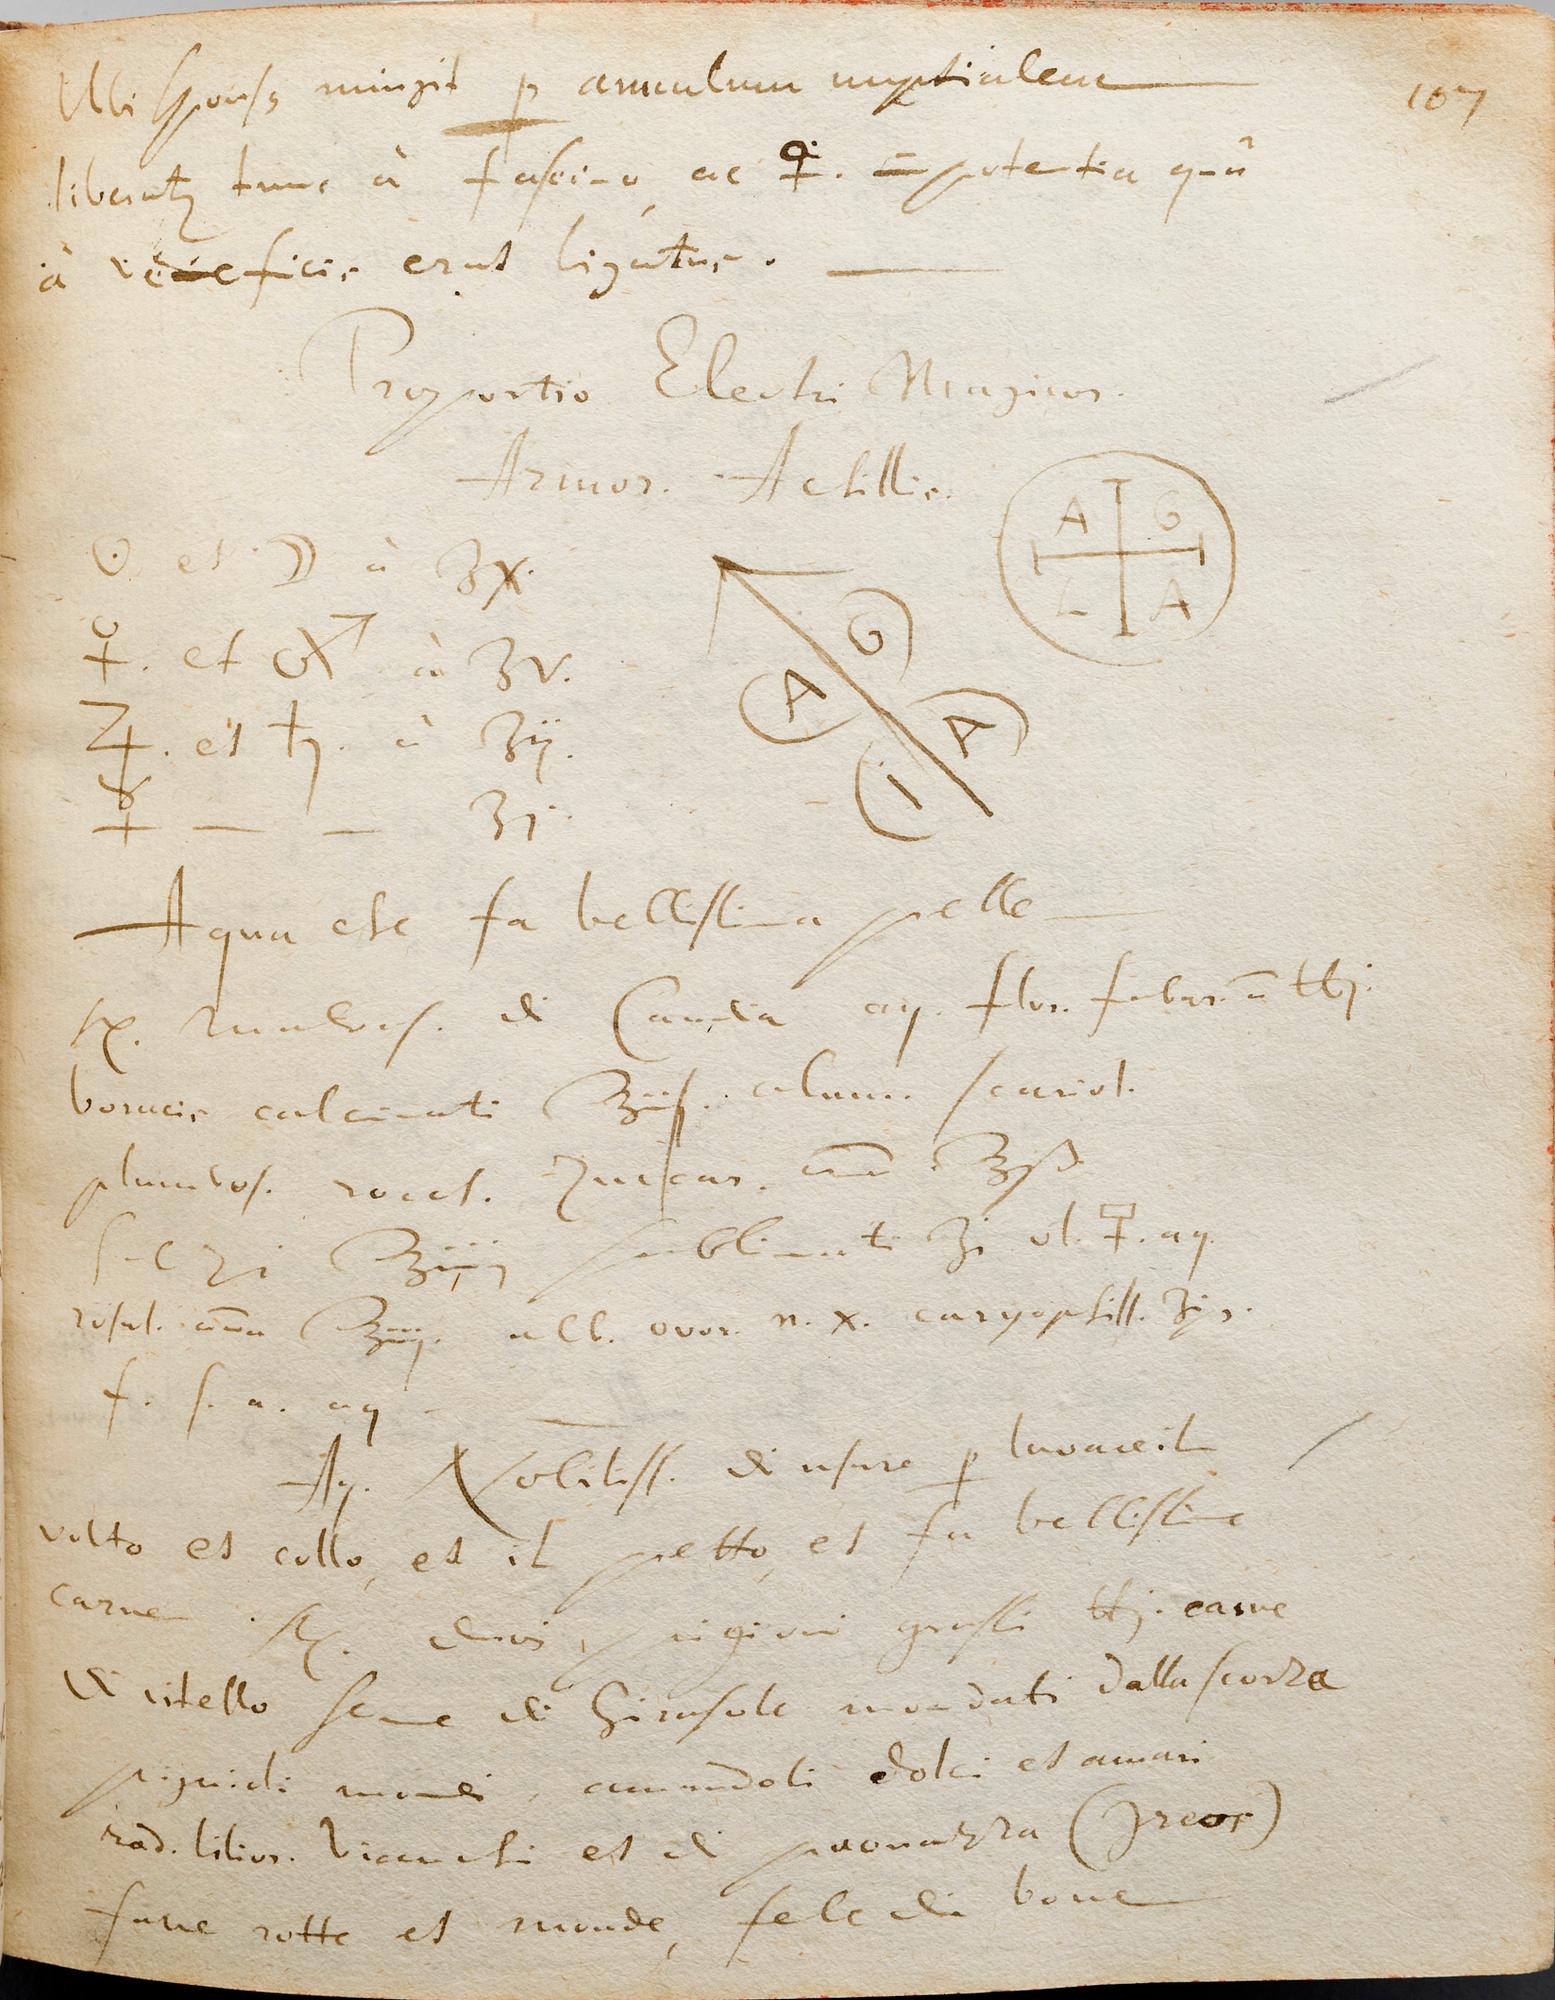 Ubi spons9 mingit p anulum nuptialem
107
liberatz tunc à fascino, ac ♀. impotentia quâ
à veneficis erat ligatus.
Proportio Electri Magicor.
Armor. Achillis.
☉ et ☽ à ʒx.
♀. et ♂ à ʒv.
♃. et ♄. à ʒij.
☿ — — ʒj.
A G
L A
A G
I A
Aqua che fa bellissima pelle
℞. malvas. di Candia aq. flor. fabar. ā ℔j.
boracis calcinati ℥iiſ. alum. scaiol.
plumbos. rocct. zuccar. ana ℥ß
℥iiij sublimati ʒi ol. aq.
rosat. ana ℥iij. alb. ovor. n. x. caryophill. ʒjs.
f. s. a. aq
Aq. Nobiliss. di usare p luoare il
volto et collo, et il petto, et fa bellissime
carne ℞. duoi pigioni grossi ℔j. carne
di vitello seme di Girasole mondati dalla scorza
pignioli mondi, amandoli dolci et amari
rad. lilior. bianchi et di paonazza (Ireos)
faue rotte et monde, fele di boue